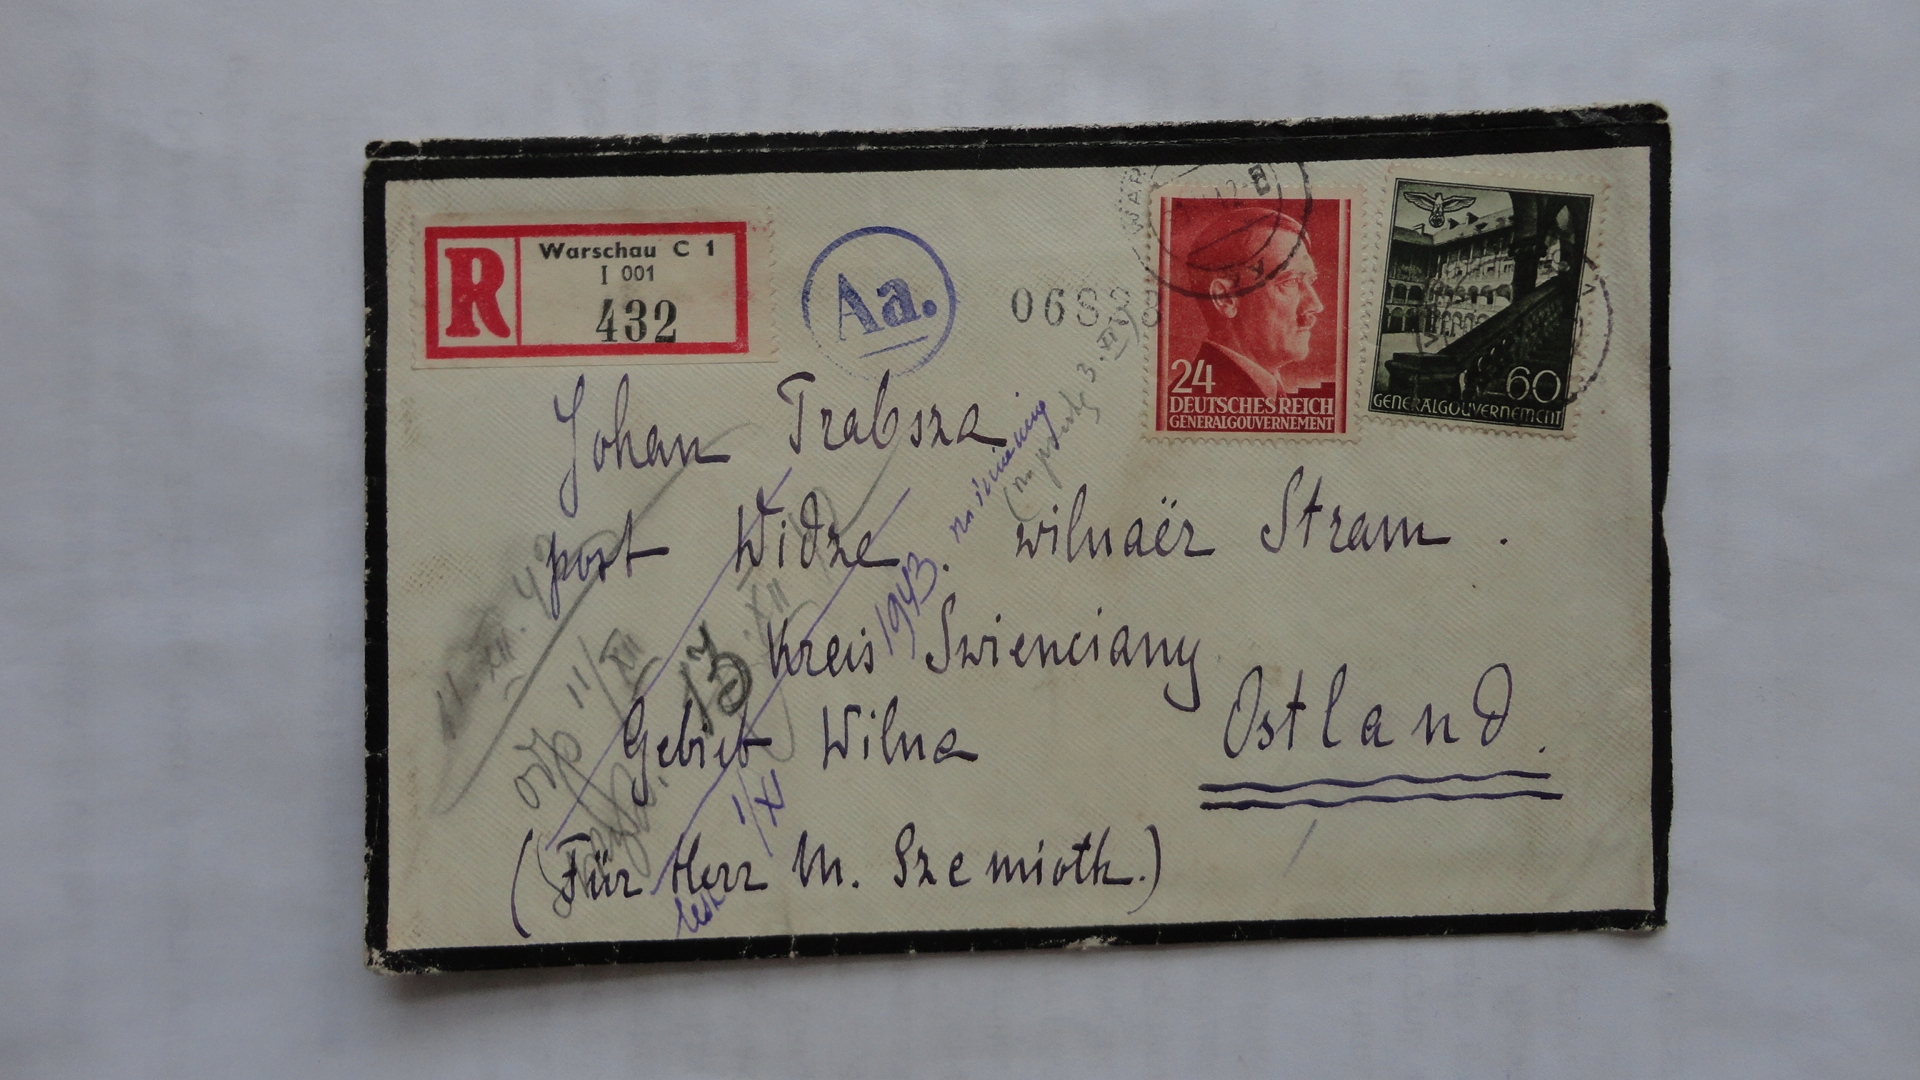 R
Warschau C 1
I 001
432
Aa.
0688
WAR
24
DEUTSCHES REICH
GENERALGOUVERNEMENT
60
GENERALGOUVERNEMENT
Johan Trabsza
post Widze wilnaër Stram.
Kreis Swienciany
Gebiet Wilna Ostland.
(Für Herr M. Szemioth.)
11.XII.42
11/XII
1/XI
1943.
3.XI